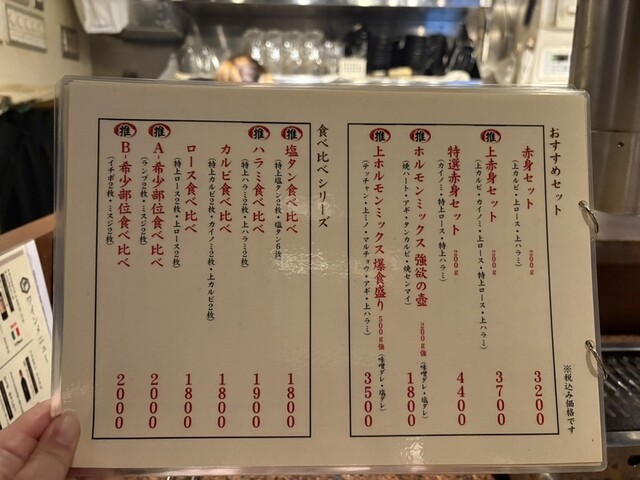 おすすめセット
※税込み価格です
赤身セット 200g 3200
(上カルビ・上ロース・上ハラミ)
推 上赤身セット 200g 3700
(上カルビ・カイノミ・上ロース・特上ロース・上ハラミ)
特選赤身セット 200g 4400
(カイノミ・特上ロース・特上ハラミ)
推 ホルモンミックス 強欲の壺 200g強 (味噌ダレ・塩ダレ) 1800
(焼ハート・アギ・タンカルビ・焼センマイ)
推 上ホルモンミックス 爆食盛り 500g強 (味噌ダレ・塩ダレ) 3500
(テッチャン・上ミノ・マルチョウ・アギ・上ハラミ)
食べ比べシリーズ
推 塩タン食べ比べ 1800
(特上塩タン2枚・塩タン6枚)
推 ハラミ食べ比べ 1900
(特上ハラミ2枚・上ハラミ2枚)
カルビ食べ比べ 1800
(特上カルビ2枚・カイノミ2枚・上カルビ2枚)
ロース食べ比べ 1800
(特上ロース2枚・上ロース2枚)
推 A-希少部位食べ比べ 2000
(ランプ2枚・ミスジ2枚)
推 B-希少部位食べ比べ 2000
(イチボ2枚・ミスジ2枚)